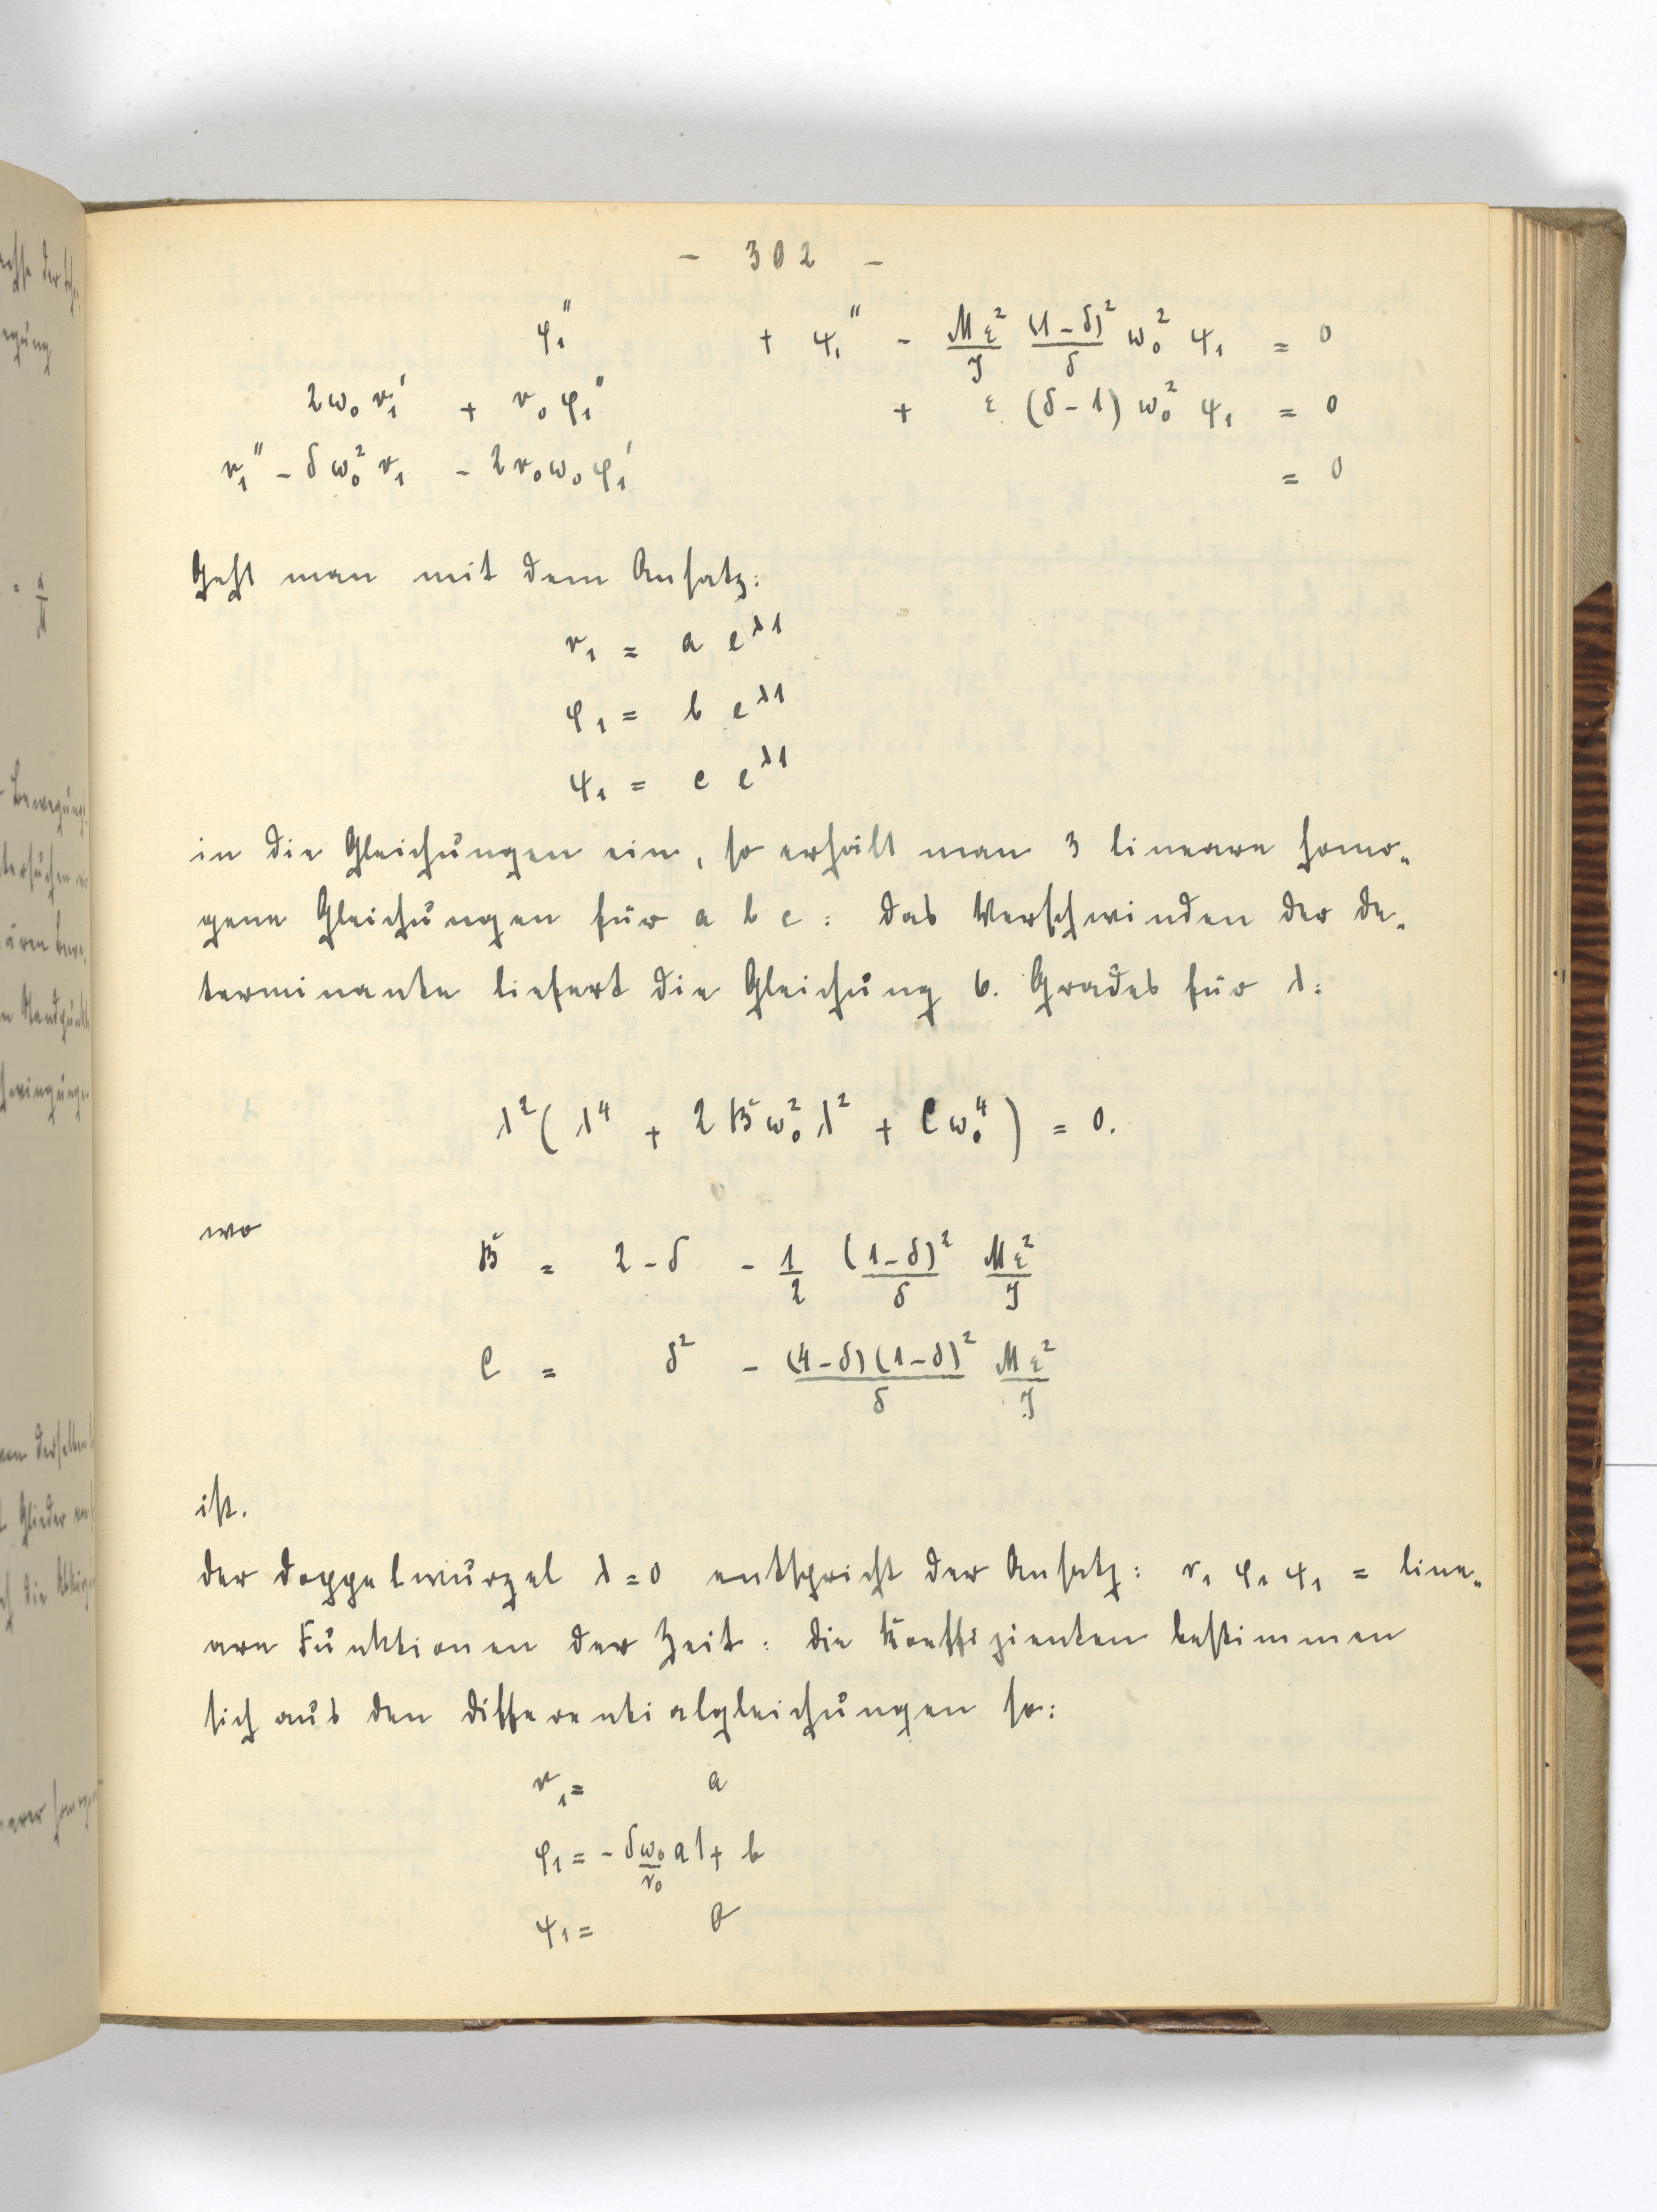 - 302 -
φ₁'' + ψ₁'' - Mε²/J (1-δ)²/δ ω₀² ψ₁ = 0
2ω₀ r₁' + r₀ φ₁'' + ε (δ-1) ω₀² ψ₁ = 0
r₁'' - δω₀² r₁ - 2r₀ω₀φ₁' = 0
Geht man mit dem Ansatz:
r₁ = a e^λt
φ₁ = b e^λt
ψ₁ = c e^λt
in die Gleichungen ein, so erhält man 3 lineare homo-
gene Gleichungen für a b c: das Verschwinden der De-
terminante liefert die Gleichung 6. Grades für λ:
λ²(λ⁴ + 2Bω₀²λ² + Cω₀⁴) = 0.
wo
B = 2-δ - 1/2 (1-δ)²/δ Mε²/J
C = δ² - (4-δ)(1-δ)²/δ Mε²/J
ist.
Der Doppelwurzel λ=0 entspricht der Ansatz: r₁ φ₁ ψ₁ = line-
are Funktionen der Zeit: die Koeffizienten bestimmen
sich aus den Differentialgleichungen so:
r₁ = a
φ₁ = - δω₀/r₀ at + b
ψ₁ = 0